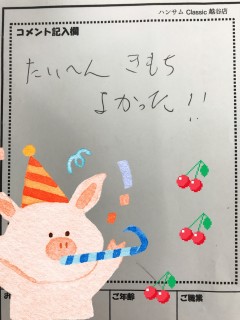 ハンサム Classic 越谷店
コメント記入欄
たいへん きもち
よかった!!
お
ご年齢
ご職業